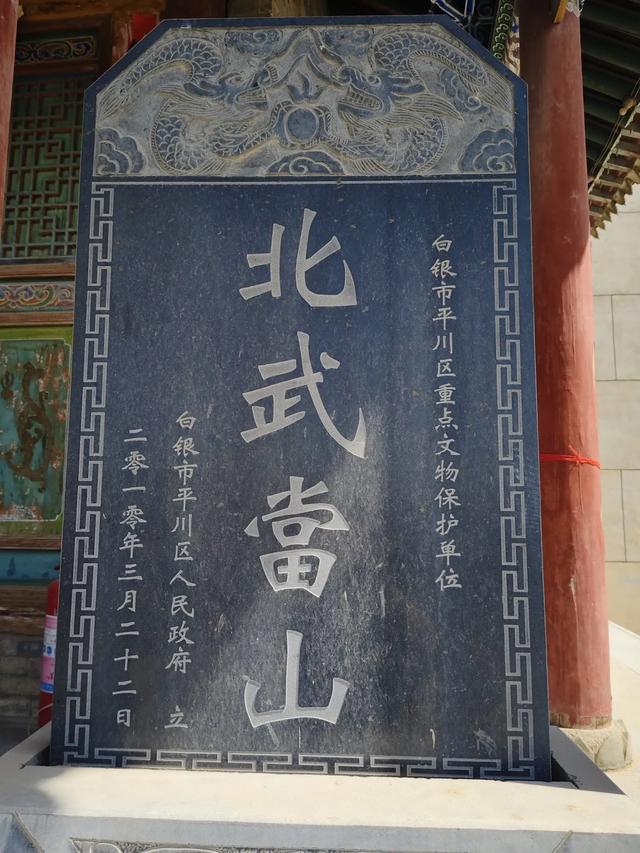 白银市平川区重点文物保护单位
北武當山
白银市平川区人民政府 立
二零一零年三月二十二日